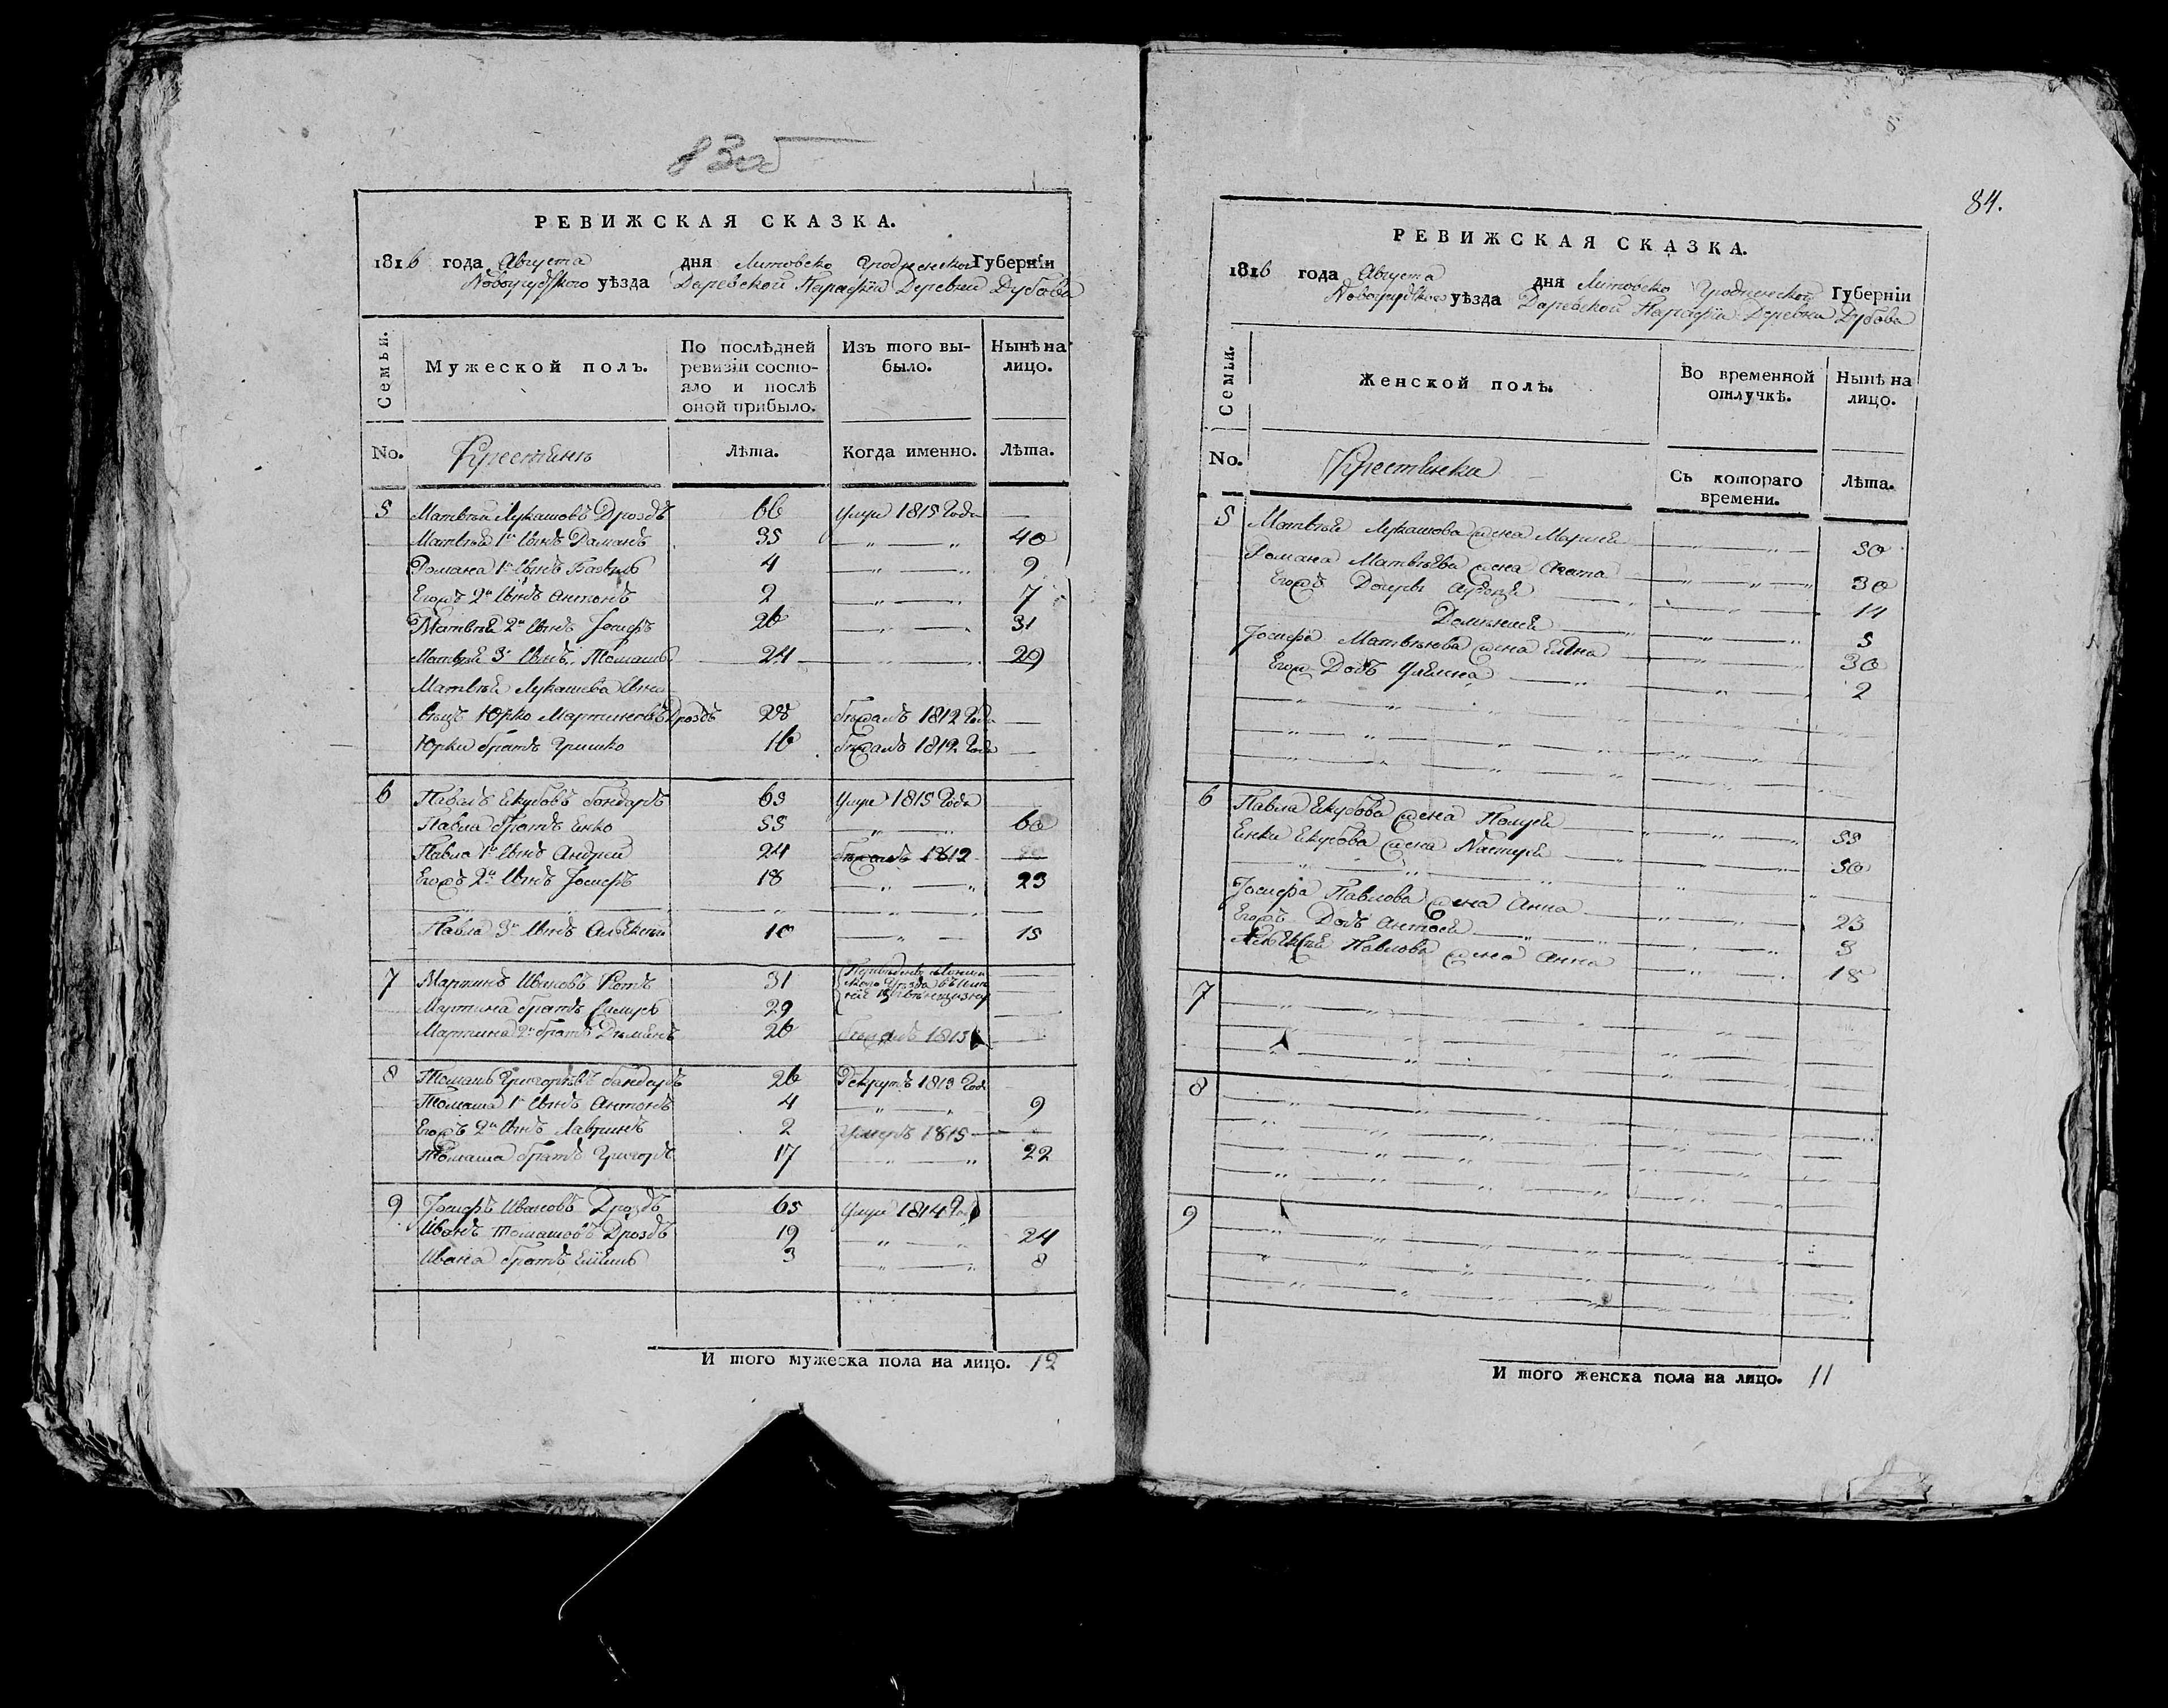 83об
РЕВИЖСКАЯ СКАЗКА.
1816 года Августа дня Литовско Гродненской Губерніи
Новогрудского уѣзда Даревской Парафіи Деревни Дубова
Семьи.
Мужеской полъ.
По послѣдней ревизіи состояло и послѣ оной прибыло.
Изъ того выбыло.
Нынѣ на лицо.
No. Крестьянъ Лѣта. Когда именно. Лѣта.
5 Матвѣй Лукашовъ Дроздъ 66 Умре 1815 Года —
Матвѣй 1й сынъ Романъ 35 — „ — „ 40
Романа 1й сынъ 4 — „ — „ 9
Егожъ 2й сынъ Антонъ 2 — „ — „ 7
Матвѣй 2й сынъ Іосифъ 26 — „ — „ 31
Матвѣй 3й сынъ Томашъ 24 — „ — „ 29
Матвѣй Лукашева
Юрко Мартиновъ Дроздъ 28 бѣжалъ 1812 Года —
Юрки братъ Гришко 16 бѣжалъ 1812 Года —
6 Павалъ Екубовъ бондаръ 65 Умре 1815 Года
Павла братъ Енко 55 — „ — „ 60
Павла 1й сынъ Андрей 24 бѣжалъ 1812 —
Егожъ 2й сынъ Іосифъ 18 — „ — „ 23
Павла 3й сынъ Алѣксѣй 10 — „ — 15
7 Мартинъ Ивановъ Котъ 31
Мартина братъ 29
Мартина 2й братъ 26 бѣжалъ 1813
8 Томашъ Григорьевъ бандаръ 26 Рекрутъ 1813 Года
Томаша 1й сынъ Антонъ 4 — „ — „ 9
Егожъ 2й сынъ Лавринъ 2 Умеръ 1815 —
Томаша братъ Григоръ 17 — „ — „ 22
9 Іосифъ Ивановъ Дроздъ 65 Умре 1814 Года
Иванъ Томашовъ Дроздъ 19 — „ — „ 24
Ивана братъ 3 — „ — „ 8
И того мужеска пола на лицо. 12
84.
РЕВИЖСКАЯ СКАЗКА.
1816 года Августа дня Литовско Гродненской Губерніи
Новогрудского уѣзда Даревской Парафіи Деревни Дубова
Семьи.
Женской полъ.
Во временной отлучкѣ.
Нынѣ на лицо.
No. Крестьянки Съ котораго времени. Лѣта.
5 Матвѣй Лукашова жена Марина 50
Романа Матвѣева жена Агата 30
Егожъ Дочери 11
5
Іосифа Матвѣева жена Елена 30
Егож Дочъ Ульяна 2
6 Павла Екубова жена 55
Енки Екубова жена Настуся 50
Іосифа Павлова жена Анна 23
Егожъ Дочъ 3
Алѣксѣй Павлова жена Анна 18
7
8
9
И того женска пола на лицо. 11